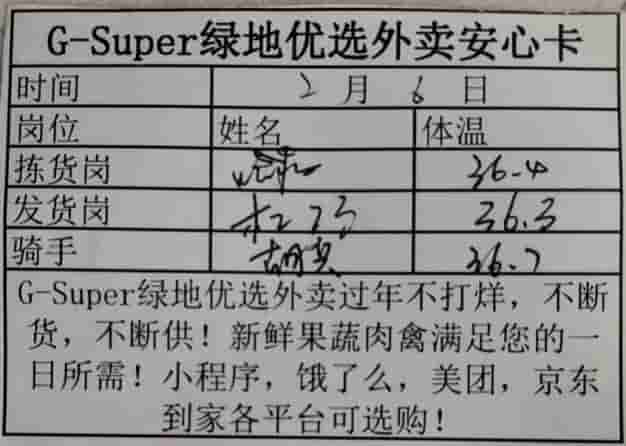 G-Super绿地优选外卖安心卡
时间 2月6日
岗位 姓名 体温
拣货岗 36.4
发货岗 36.3
骑手 胡 36.7
G-Super绿地优选外卖过年不打烊，不断
货，不断供！新鲜果蔬肉禽满足您的一
日所需！小程序，饿了么，美团，京东
到家各平台可选购！